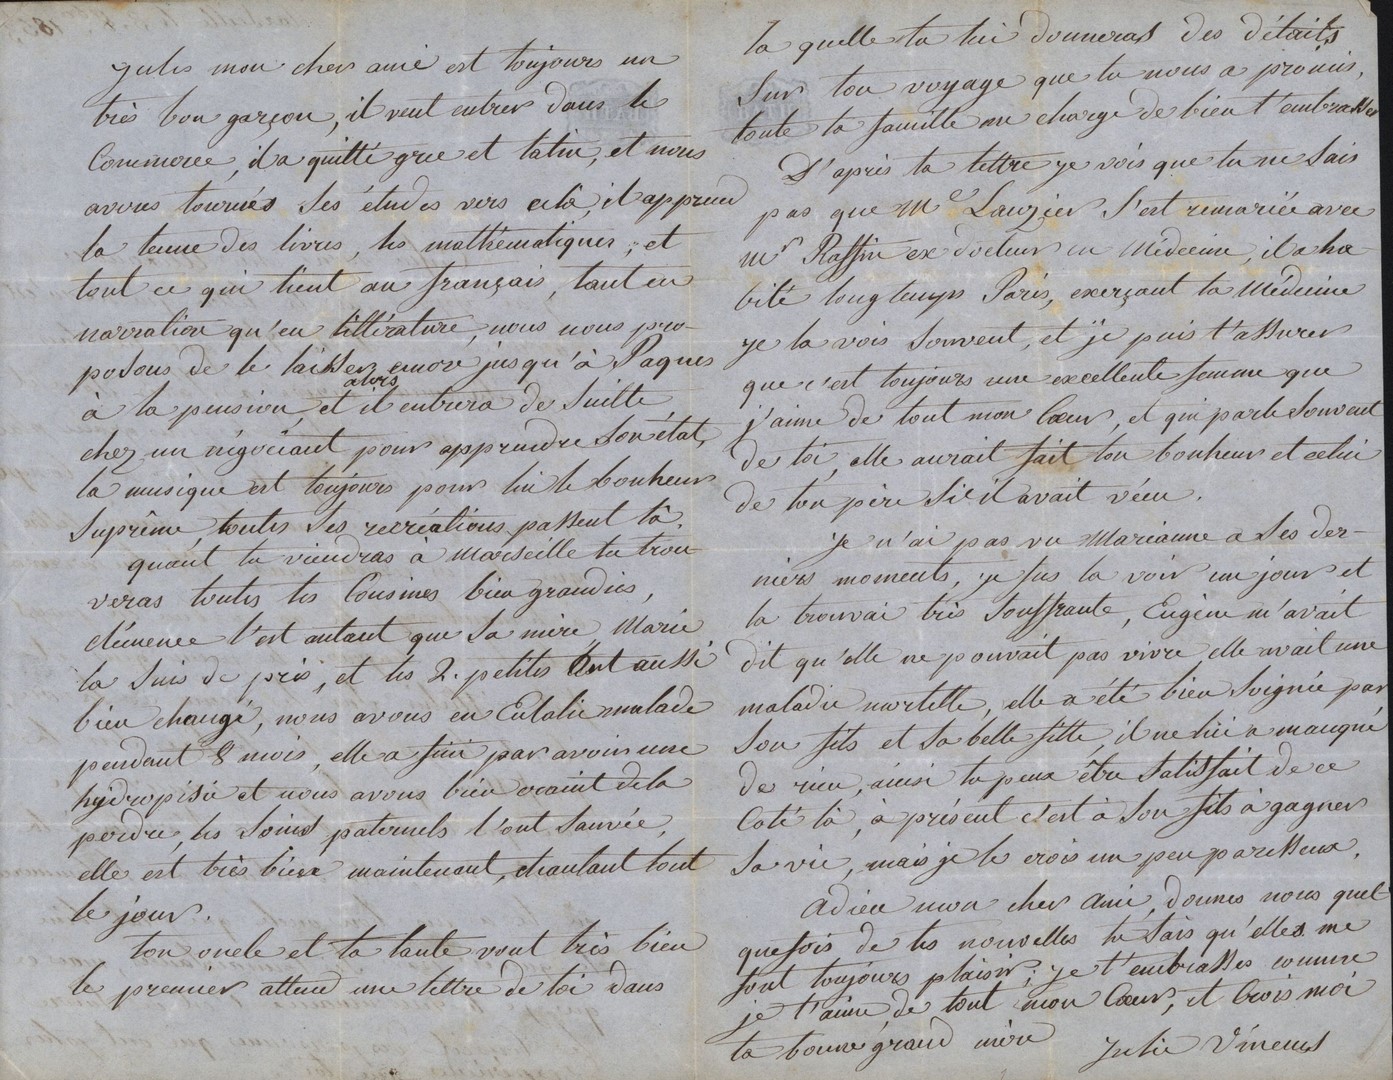 Jules mon cher ami est toujours un
très bon garçon, il veut entrer dans le
Commerce, il a quitté grec et latin, et nous
avons tournés ses études vers celà, il apprend
la tenue des livres, les mathématiques, et
tout ce qui tient au français, tant en
narration qu'en littérature, nous nous pro-
posons de le laisser encore jusqu'à Paques
à la pension, et alors il entrera de suitte
chez un négociant pour apprendre son état,
la musique est toujours pour lui le bonheur
suprême, toutes ses recréations passent là.
quant tu viendras à Marseille tu trou-
veras toutes tes Cousines bien grandies,
clémence l'est autant que sa mère, Marie
la suis de près, et les 2. petites ont aussi
bien changé, nous avons eu Eulalie malade
pendant 8 mois, elle a fini par avoir une
hydropisie et nous avons bien craint de la
perdre, les soins paternels l'ont sauvée,
elle est très bien maintenant, chantant tout
le jour.
ton oncle et ta tante vont très bien
le premier attend une lettre de toi dans
la quelle tu lui donneras des détails
sur ton voyage que tu nous a promis,
toute la famille me charge de bien t'embrasser
D'après ta lettre je vois que tu ne sais
pas que Me Lauzier s'est remariée avec
Mr Raffin ex docteur en Médecine, il a ha
bité longtemps Paris, exerçant la Médecine
je la vois souvent, et je puis t'assurer
que c'est toujours une excellente femme que
j'aime de tout mon Cœur, et qui parle souvent
de toi, elle aurait fait ton bonheur et celui
de ton père si il avait vécu.
Je n'ai pas vu Marianne a ses der-
niers moments, je fus la voir un jour et
la trouvai très souffrante, Eugène m'avait
dit qu'elle ne pouvait pas vivre, elle avait une
maladie mortelle, elle a été bien soignée par
son fils et sa belle fille, il ne lui a manqué
de rien, ainsi tu peux être satisfait de ce
Coté là, à présent c'est à son fils à gagner
sa vie, mais je le crois un peu paresseux.
Adieu mon cher ami, donnes nous quel-
quefois de tes nouvelles tu sais qu'elles me
font toujours plaisir; je t'embrasses comme
je t'aime, de tout mon Cœur, et Crois moi
ta bonne grand mère Julie Vincens